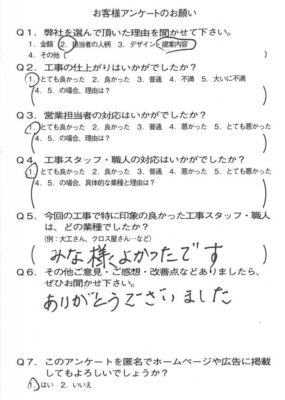 お客様アンケートのお願い
Q1．弊社を選んで頂いた理由を聞かせて下さい。
1．金額 2．担当者の人柄 3．デザイン・提案内容
4．その他（ ）
Q2．工事の仕上がりはいかがでしたか？
1．とても良かった 2．良かった 3．普通 4．不満 5．大いに不満
4．5．の場合、理由は？
Q3．営業担当者の対応はいかがでしたか？
1．とても良かった 2．良かった 3．普通 4．悪かった 5．とても悪かった
4．5．の場合、理由は？
Q4．工事スタッフ・職人の対応はいかがでしたか？
1．とても良かった 2．良かった 3．普通 4．悪かった 5．とても悪かった
4．5．の場合、具体的な業種と理由は？
Q5．今回の工事で特に印象の良かった工事スタッフ・職人
は、どの業種でしたか？
（例：大工さん、クロス屋さん…など）
みな様よかったです
Q6．その他ご意見・ご感想・改善点などありましたら、
ぜひお聞かせ下さい。
ありがとうございました
Q7．このアンケートを匿名でホームページや広告に掲載
してもよろしいでしょうか？
1．はい 2．いいえ